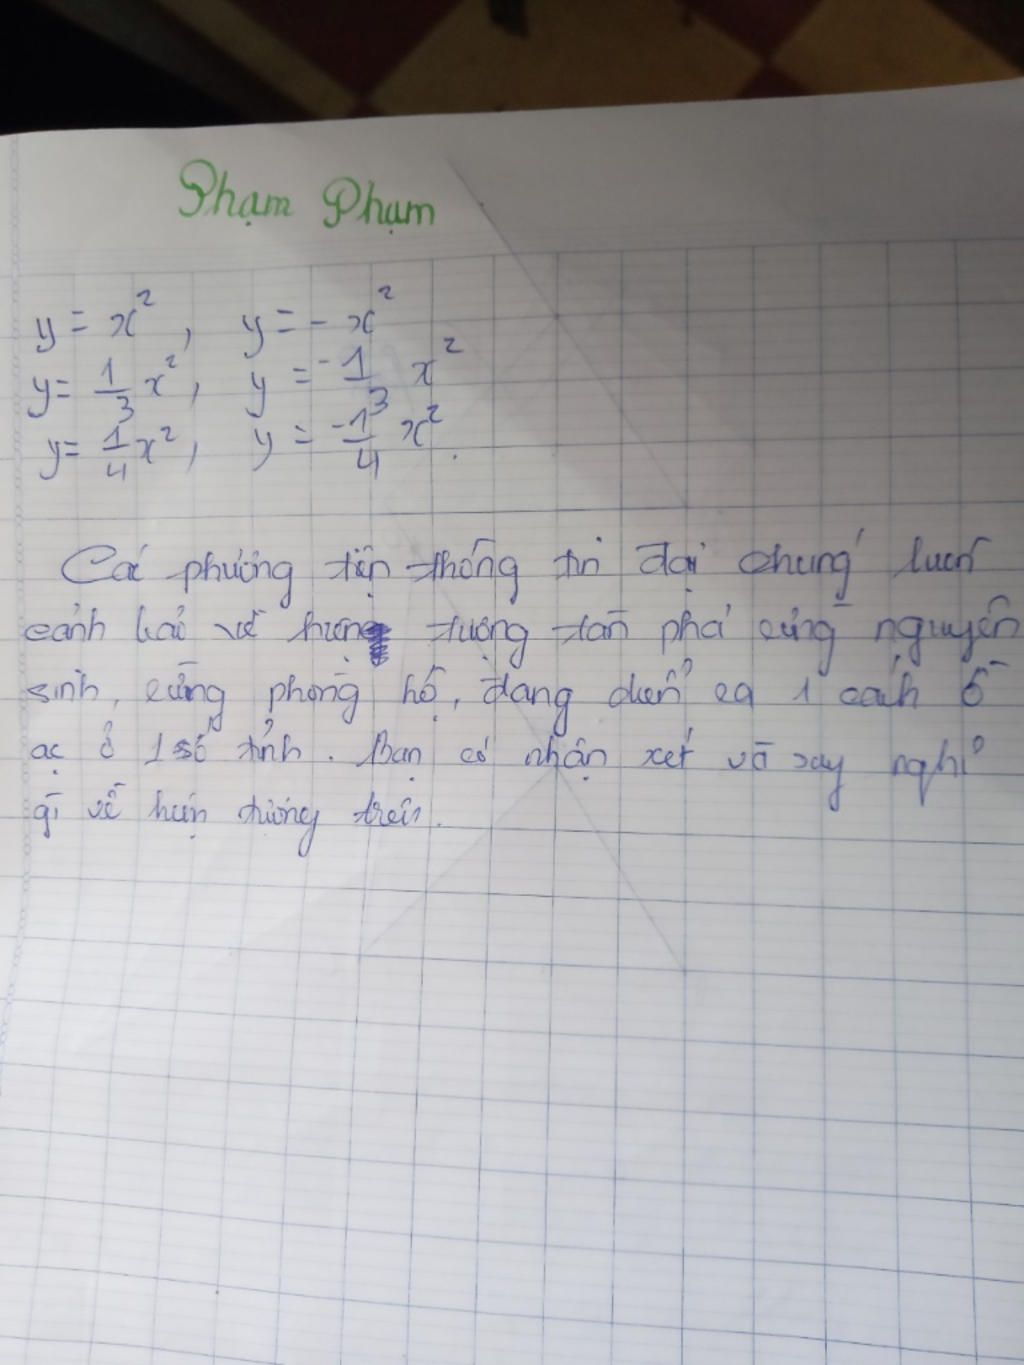 Phạm Phạm
y = x², y = - x²
y = 1/3 x², y = -1/3 x²
y = 1/4 x², y = -1/4 x².
Các phương tiện thông tin đại chúng luôn
cảnh báo về hiện tượng tàn phá rừng nguyên
sinh, rừng phòng hộ, đang diễn ra 1 cách ồ
ạt ở 1 số tỉnh. Bạn có nhận xét và suy nghĩ
gì về hiện tượng trên.